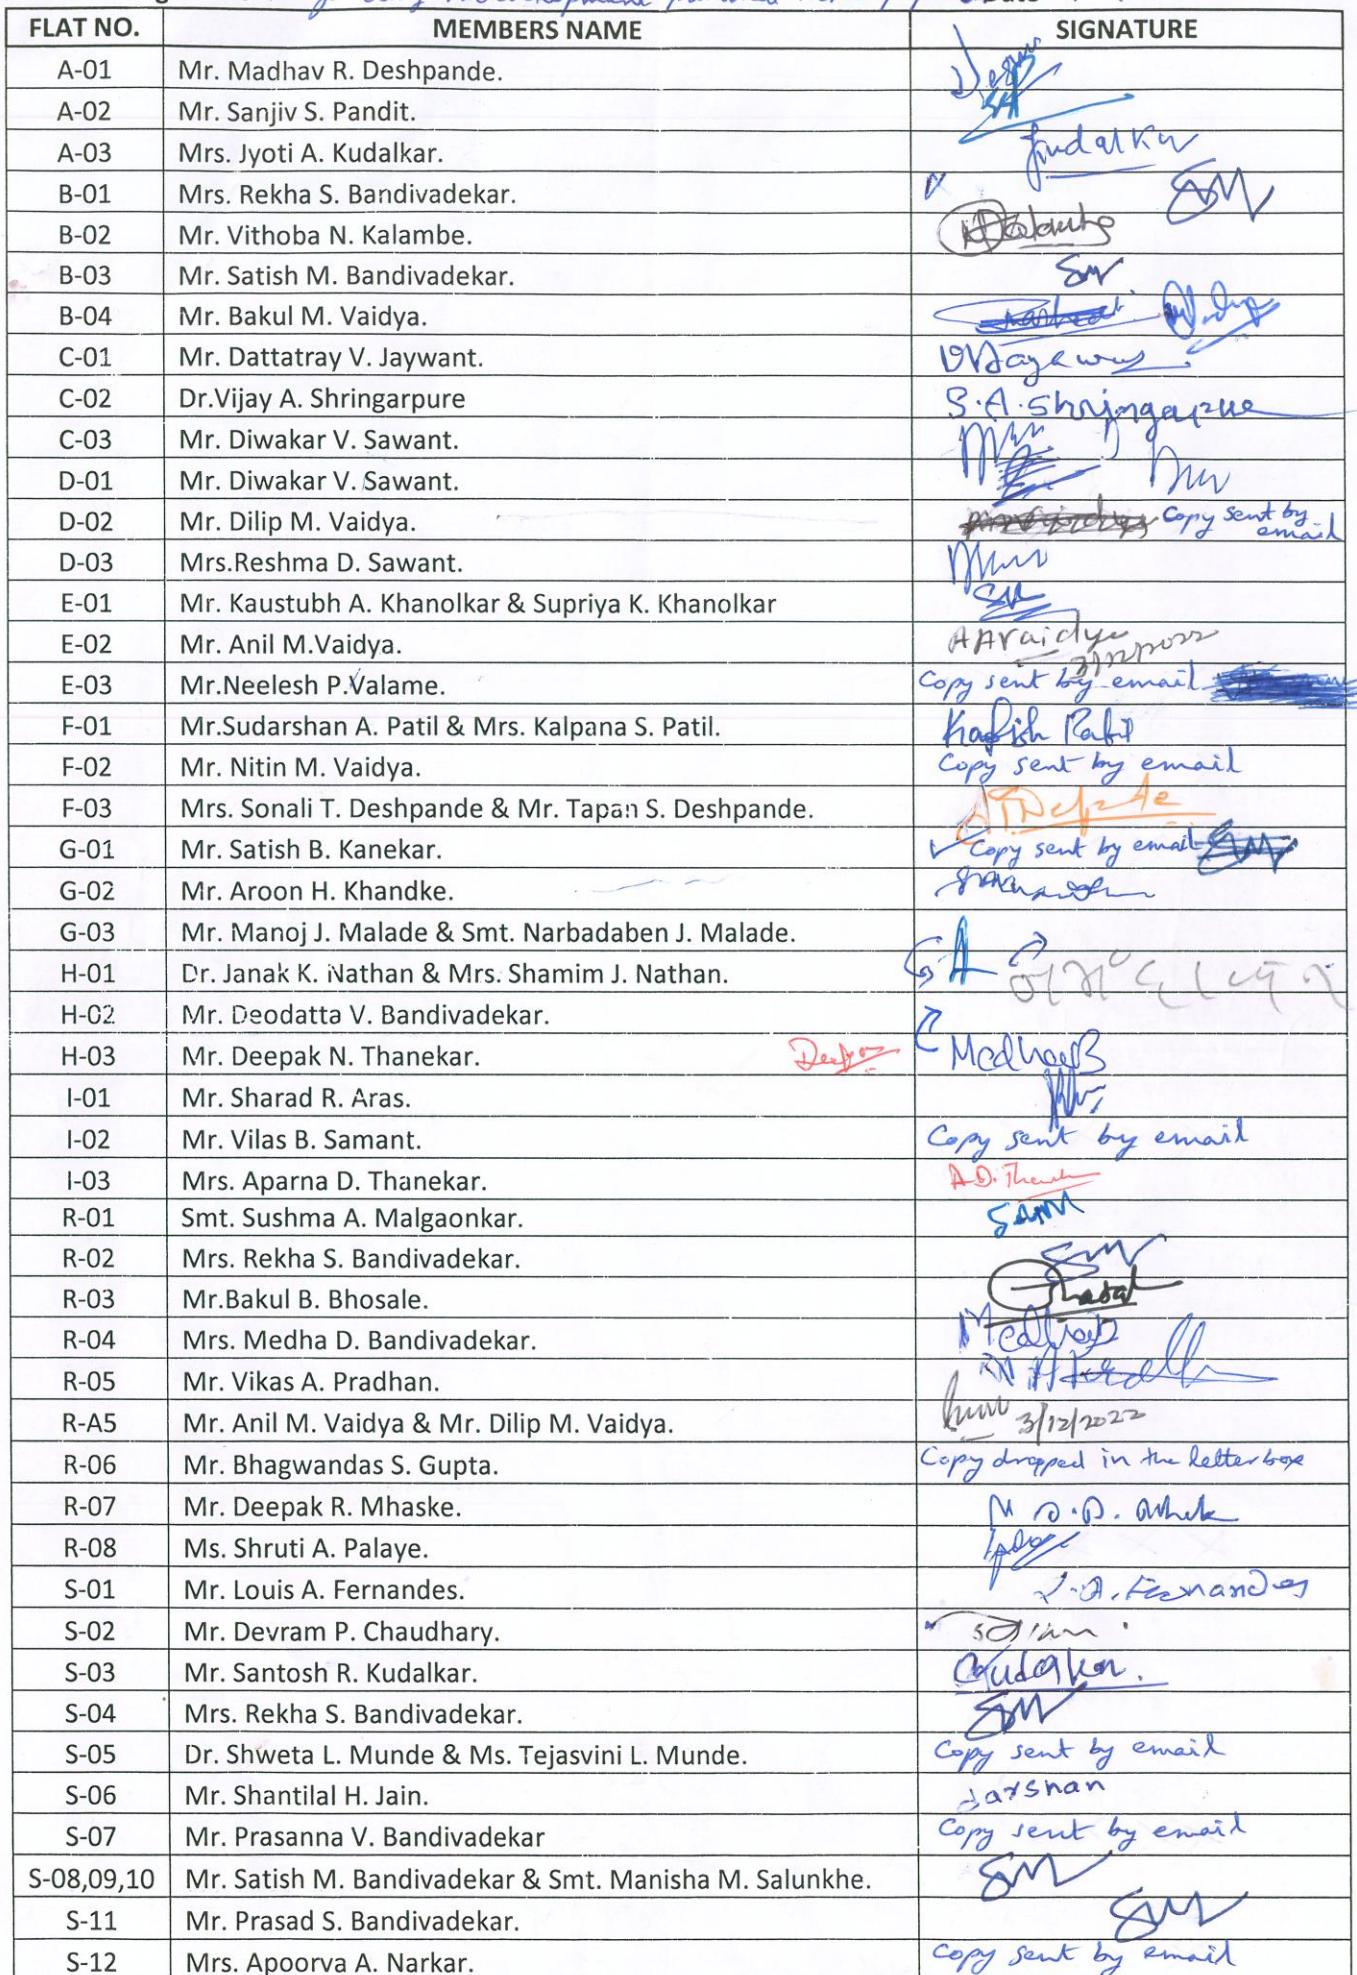 FLAT NO. MEMBERS NAME SIGNATURE
A-01 Mr. Madhav R. Deshpande.
A-02 Mr. Sanjiv S. Pandit.
A-03 Mrs. Jyoti A. Kudalkar.
B-01 Mrs. Rekha S. Bandivadekar.
B-02 Mr. Vithoba N. Kalambe.
B-03 Mr. Satish M. Bandivadekar.
B-04 Mr. Bakul M. Vaidya.
C-01 Mr. Dattatray V. Jaywant.
C-02 Dr.Vijay A. Shringarpure S.A.Shringarpure
C-03 Mr. Diwakar V. Sawant.
D-01 Mr. Diwakar V. Sawant.
D-02 Mr. Dilip M. Vaidya. Copy sent by email
D-03 Mrs.Reshma D. Sawant.
E-01 Mr. Kaustubh A. Khanolkar & Supriya K. Khanolkar
E-02 Mr. Anil M.Vaidya. AAVaidya 3/12/2022
E-03 Mr.Neelesh P.Valame. Copy sent by email
F-01 Mr.Sudarshan A. Patil & Mrs. Kalpana S. Patil.
F-02 Mr. Nitin M. Vaidya. Copy sent by email
F-03 Mrs. Sonali T. Deshpande & Mr. Tapan S. Deshpande.
G-01 Mr. Satish B. Kanekar. Copy sent by email
G-02 Mr. Aroon H. Khandke.
G-03 Mr. Manoj J. Malade & Smt. Narbadaben J. Malade.
H-01 Dr. Janak K. Nathan & Mrs. Shamim J. Nathan.
H-02 Mr. Deodatta V. Bandivadekar.
H-03 Mr. Deepak N. Thanekar. MedhaB
I-01 Mr. Sharad R. Aras.
I-02 Mr. Vilas B. Samant. Copy sent by email
I-03 Mrs. Aparna D. Thanekar.
R-01 Smt. Sushma A. Malgaonkar.
R-02 Mrs. Rekha S. Bandivadekar.
R-03 Mr.Bakul B. Bhosale.
R-04 Mrs. Medha D. Bandivadekar.
R-05 Mr. Vikas A. Pradhan.
R-A5 Mr. Anil M. Vaidya & Mr. Dilip M. Vaidya. 3/12/2022
R-06 Mr. Bhagwandas S. Gupta. Copy dropped in the letter box
R-07 Mr. Deepak R. Mhaske.
R-08 Ms. Shruti A. Palaye.
S-01 Mr. Louis A. Fernandes. L.A. Fernandes
S-02 Mr. Devram P. Chaudhary.
S-03 Mr. Santosh R. Kudalkar.
S-04 Mrs. Rekha S. Bandivadekar.
S-05 Dr. Shweta L. Munde & Ms. Tejasvini L. Munde. Copy sent by email
S-06 Mr. Shantilal H. Jain. darshan
S-07 Mr. Prasanna V. Bandivadekar Copy sent by email
S-08,09,10 Mr. Satish M. Bandivadekar & Smt. Manisha M. Salunkhe.
S-11 Mr. Prasad S. Bandivadekar.
S-12 Mrs. Apoorva A. Narkar. Copy sent by email